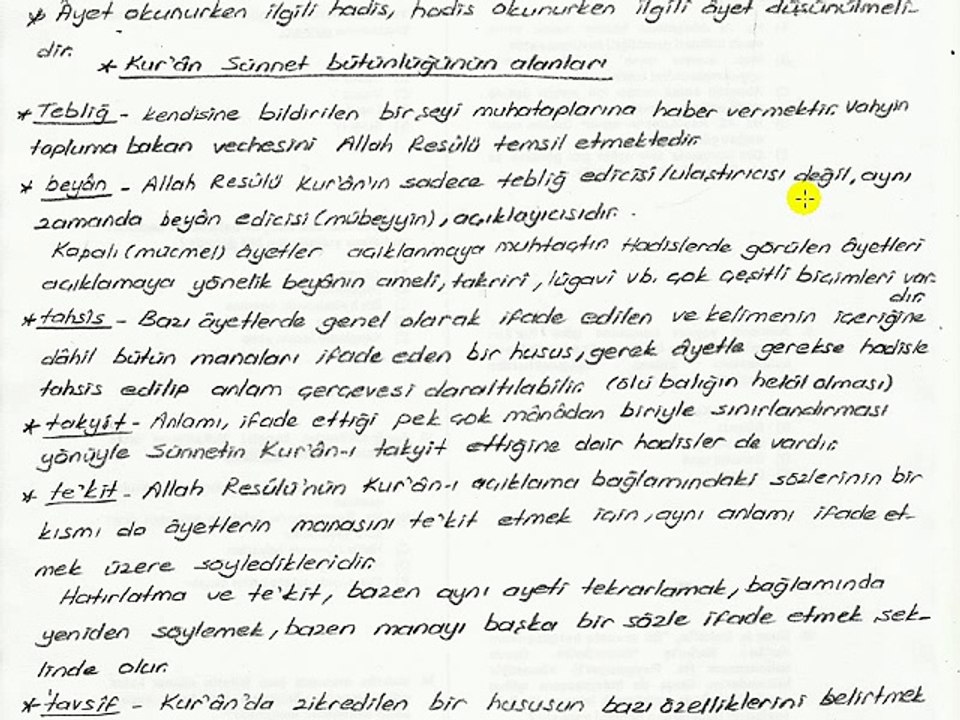 * Âyet okunurken ilgili hadis, hadis okunurken ilgili âyet düşünülmeli-
dir.
* Kur'ân Sünnet bütünlüğünün alanları
* Tebliğ - kendisine bildirilen bir şeyi muhataplarına haber vermektir. Vahyin
topluma bakan vechesini Allah Resûlü temsil etmektedir.
* beyân - Allah Resûlü Kur'ân'ın sadece tebliğ edicisi/ulaştırıcısı değil, aynı
zamanda beyân edicisi (mübeyyin), açıklayıcısıdır.
Kapalı (mücmel) âyetler açıklanmaya muhtaçtır. Hadislerde görülen âyetleri
açıklamaya yönelik beyânın ameli, takrirî, lügavi vb. çok çeşitli biçimleri var-
dır.
* tahsîs - Bazı âyetlerde genel olarak ifade edilen ve kelimenin içeriğine
dâhil bütün manaları ifade eden bir husus, gerek âyetle gerekse hadisle
tahsis edilip anlam çerçevesi daraltılabilir. (ölü balığın helâl olması)
* takyît - Anlamı, ifade ettiği pek çok mânâdan biriyle sınırlandırması
yönüyle Sünnetin Kur'ân-ı takyit ettiğine dair hadisler de vardır.
* te'kit - Allah Resûlü'nün Kur'ân-ı açıklama bağlamındaki sözlerinin bir
kısmı da âyetlerin manasını te'kit etmek için, aynı anlamı ifade et-
mek üzere söyledikleridir.
Hatırlatma ve te'kit, bazen aynı ayeti tekrarlamak, bağlamında
yeniden söylemek, bazen manayı başka bir sözle ifade etmek şek-
linde olur.
* tavsîf - Kur'ân'da zikredilen bir hususun bazı özelliklerini belirtmek